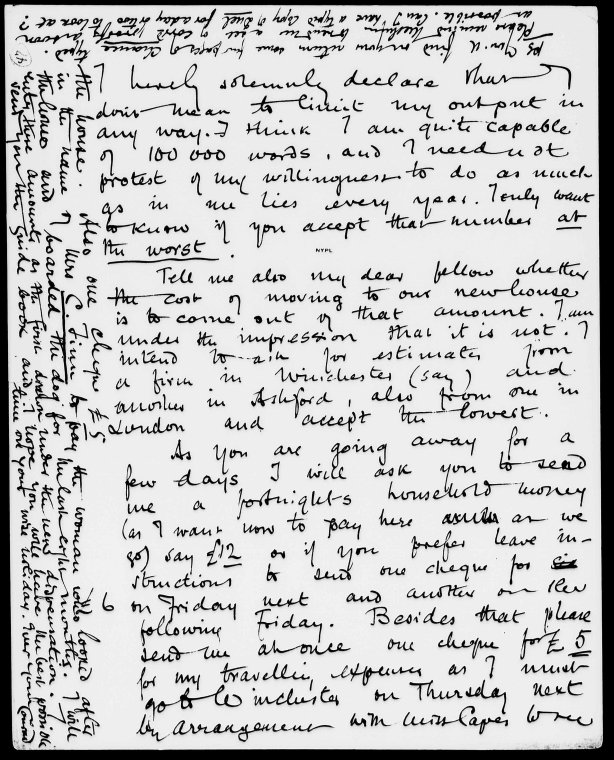 I hereby solemnly declare that I
don't mean to limit my output in
any way. I think I am quite capable
of 100 000 words, and I need not
protest of my willingness to do as much
as in me lies every year. I only want
to know if you accept that number at
the worst.
NYPL
Tell me also my dear fellow whether
the cost of moving to our new house
is to come out of that amount. I am
under the impression that it is not. I
intend to ask for estimates from
a firm in Winchester (say) and
another in Ashford, also from one in
London and accept the lowest.
As you are going away for a
few days I will ask you to send
me a fortnight's household money
(as I want now to pay here as we
go) say £12 or if you prefer leave in-
structions to send one cheque for six
6 on Friday next and another on the
following Friday. Besides that please
send me at once one cheque for £5
for my travelling expenses as I must
go to Winchester on Thursday next
by arrangement with Miss Capes to see
the house. Also one cheque £5
in the name of Mrs C. Finn to pay the woman who looked after
the house and boarded the dog for the last eight months. I will
enter these amounts as the first under the new dispensation. I
sent you the guide book and I hope you will have the best possible
time on your wise holiday. Yours Conrad
PS You will find on your return some pages of Chance typed
Please remind to send me a set of corrd proofs as soon
as possible. Can I have a typed copy of Duel for a day or two to look at?